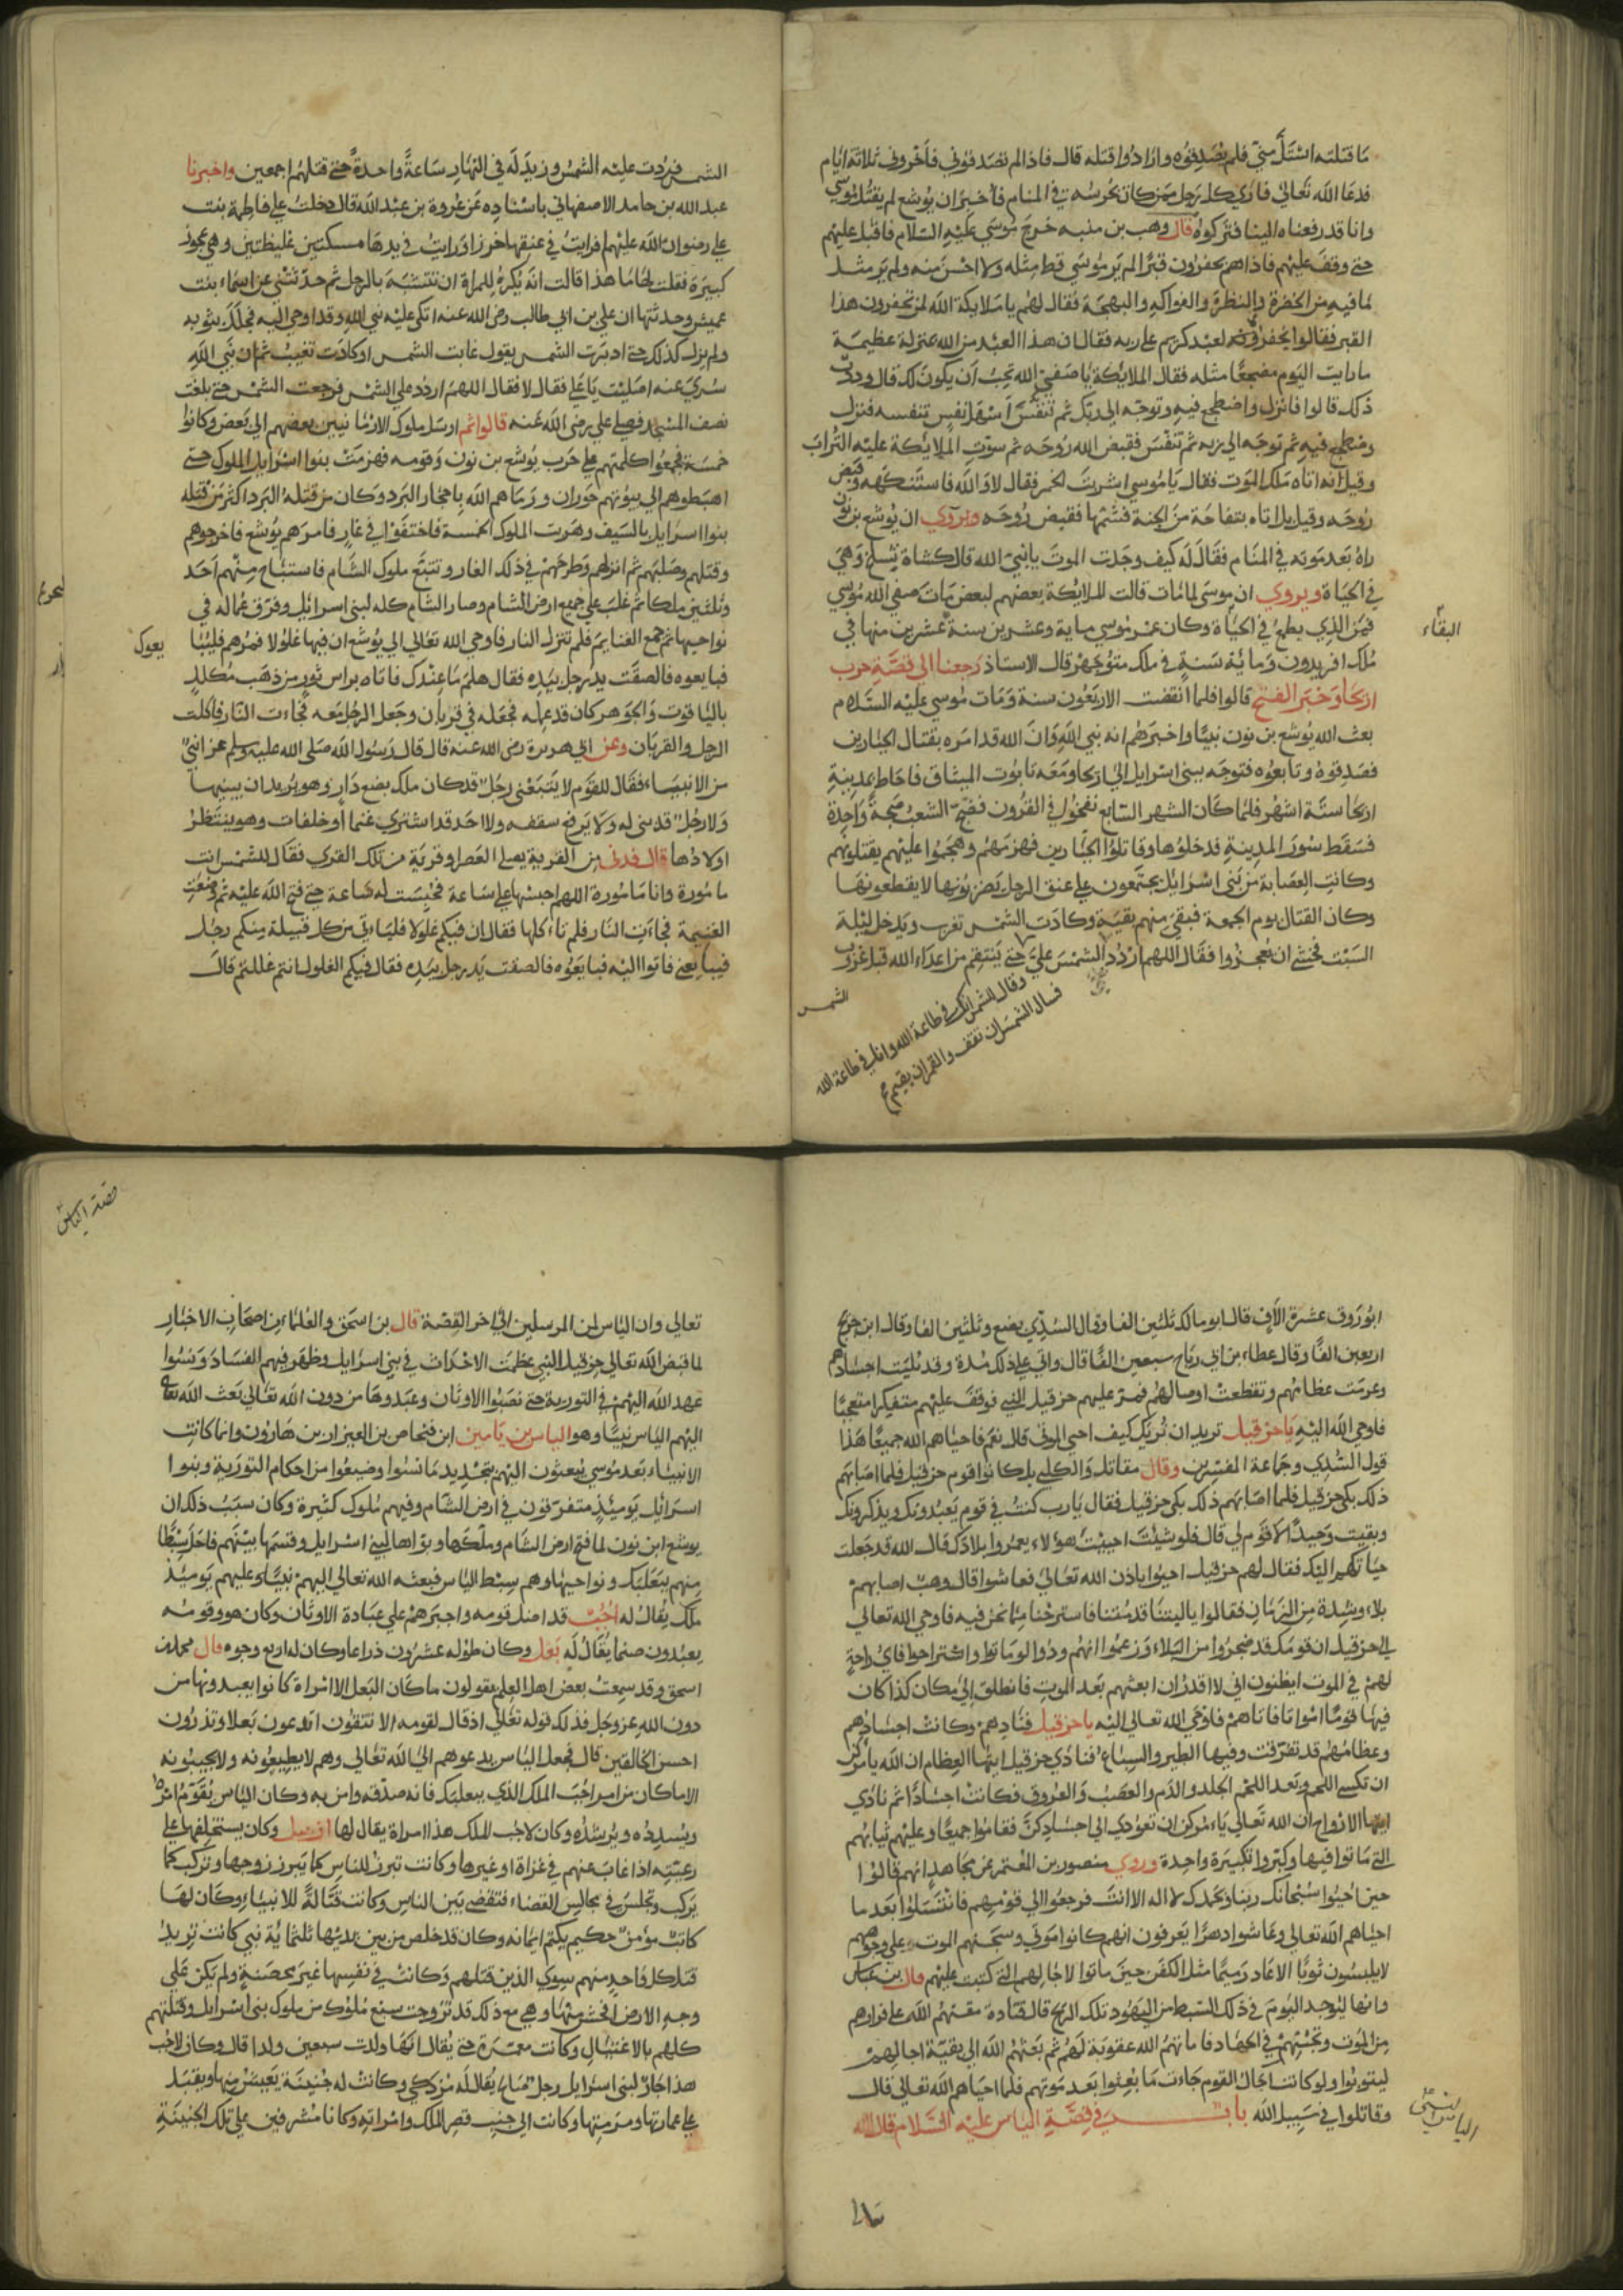 ما قتلته استل مني فلم يصدقوه وارادوا قتله قال فاذا لم تصدقوني فأخروني ثلاثة ايام
فدعا الله تعالى فاري كل رجل ممن كان يحرسه في المنام فأخبر ان يوشع لم يقتل موسى
وانا قد رفعناه الينا فتركوه قال وهب بن منبه خرج موسى عليه السلام فاقبل عليهم
حتى وقف عليهم فاذا هم يحفرون قبرا لم ير موسى قط مثله ولا احسن منه ولم ير مثل
ما فيه من الخضرة والنظرة والفواكه والبهجة فقال لهم يا ملايكة الله لمن تحفرون هذا
القبر فقالوا نحفره لعبد كريم على ربه فقال ان هذا العبد من الله بمنزلة عظيمة
ما رايت اليوم مضجعا مثله فقال الملايكة يا صفي الله تحب أن يكون لك قال وددت
ذلك قالوا فانزل واضطجع فيه وتوجه الى ربك ثم تنفس أسهل نفس تنفسه فنزل
وضطجع فيه ثم توجه الى ربه ثم تنفس فقبض الله روحه ثم سوت الملايكة عليه التراب
وقيل انه اتاه ملك الموت فقال يا موسى اشربت الخمر فقال لا والله فاستنكهه وقبض
روحه وقيل بل اتاه بتفاحة من الجنة فشمها فقبض روحه ويروي ان يوشع بن نون
راه بعد موته في المنام فقال له كيف وجدت الموت يا نبي الله قال كشاة تسلخ وهي
في الحياة ويروي ان موسى لما مات قالت الملايكة بعضهم لبعض مات صفي الله موسى
فمن الذي يطمع في الحياة وكان عمر موسى ماية وعشرين سنة عشرين منها في
البقاء
ملك افريدون وماية سنة في ملك منوجهر قال الاستاذ رجعنا الى قصة حرب
اريحا وخبر الفتح قالوا فلما انقضت الاربعون سنة ومات موسى عليه السلام
بعث الله يوشع بن نون نبيا واخبرهم انه نبي الله وان الله قد امره بقتال الجبارين
فصدقوه وتابعوه فتوجه ببني اسرايل الى اريحا ومعه تابوت الميثاق فاحاط بمدينة
اريحا ستة اشهر فلما كان الشهر السابع نفخوا في القرون فضج الشعب ضجة واحدة
فسقط سور المدينة فدخلوها وقاتلوا الجبارين فهزمهم وهجموا عليهم يقتلونهم
وكانت العصابة من بني اسرايل يجتمعون على عنق الرجل يضربونها لا يقطعونها
وكان القتال يوم الجمعة فبقى منهم بقية وكادت الشمس تغرب ويدخل ليلة
السبت فخشى ان يعجزوا فقال اللهم اردد الشمس علي حتى ينتقم من اعداء الله قبل غروب
وقال للشمس انك في طاعة الله وانا في طاعة الله
فسال الشمس ان تقف والقمر ان يقيم
الشمس
الشمس فردت عليه الشمس وزيد له في النهار ساعة واحدة حتى قتلهم اجمعين واخبرنا
عبد الله بن حامد الاصفهاني باسناده عن عروة بن عبد الله قال دخلت على فاطمة بنت
علي رضوان الله عليهم فرايت في عنقها خرزا ورايت في يدها مسكتين غليظتين وهي عجوز
كبيرة فقلت لها ما هذا قالت انه يكره للمراة ان تتشبه بالرجل ثم حدثتني عن اسماء بنت
عميس وحدثتها ان علي بن ابي طالب رضى الله عنه اتكى عليه نبي الله وقد اوحي اليه فجلله بثوبه
ولم يزل كذلك حتى ادبرت الشمس يقول غابت الشمس او كادت تغيب ثم ان نبي الله
سري عنه اصليت يا علي فقال لا فقال اللهم اردد على الشمس فرجعت الشمس حتى بلغت
نصف المسجد فصلى علي رضى الله عنه قالوا ثم ارسل ملوك الارمانيين بعضهم الى بعض وكانوا
خمسة فجمعوا كلمتهم على حرب يوشع بن نون وقومه فهزمت بنوا اسرايل الملوك حتى
اهبطوهم الى بيوتهم حوران ورماهم الله باحجار البرد وكان من قتله البرد اكثر من قتله
بنوا اسرايل بالسيف وهرب الملوك الخمسة فاختفوا في غار فامرهم يوشع فاخرجوهم
وقتلهم وصلبهم ثم انزلهم وطرحهم في ذلك الغار وتتبع ملوك الشام فاستباح منهم احد
وثلثين ملكا ثم غلب على جميع ارض الشام وصار الشام كله لبني اسرايل وفرق عماله في
نواحيها ثم جمع الغنايم فلم تنزل النار فاوحى الله تعالى الى يوشع ان فيها غلولا فمرهم فليبا
يعوك
فبايعوه فالصقت يد رجل بيده فقال هلم ما عندك فاتاه براس ثور من ذهب مكلل
باليا قوت والجوهر كان قد غله فجعله في قربان وجعل الرجل معه فجاءت النار فاكلت
الرجل والقربان وعن ابي هريرة رضى الله عنه قال قال رسول الله صلى الله عليه وسلم غزا نبي
من الانبياء فقال للقوم لا يتبعني رجل قد كان ملك بضع دار وهو يريد ان يبنيها
ولا رجل قد بنى له ولا يرفع سقفه ولا احد قد اشترى غنما أو خلفات وهو ينتظر
اولادها قال فدنى من القرية يصلى العصر او قريبة من تلك القرى فقال للشمس انت
مامورة وانا مامورة اللهم احبسها علي ساعة فحبست له ساعة حتى فتح الله عليه ثم وضعت
الغنيمة فجاءت النار فلم تاءكلها فقال ان فيكم غلولا فلياءتي من كل قبيلة منكم رجل
فيبايعني فاتوا اليه فبايعوه فالصقت يد رجل بيده فقال فيكم الغلول انتم غللتم قال
ابو روق عشرة الاف قال ابو مالك ثلثين الفا وقال السدي بضع وثلثين الفا وقال ابن جريج
اربعين الفا وقال عطاء بن ابي رباح سبعين الفا قال واتى على ذلك مدة وقد بليت اجسادهم
وعرمت عظامهم وتقطعت اوصالهم فمر عليهم حزقيل النبي فوقف عليهم متفكرا متعجبا
فاوحى الله اليه يا حزقيل تريد ان نريك كيف احي الموتى قال نعم فاحياهم الله جميعا هذا
قول السدي وجماعة المفسرين وقال مقاتل والكلبي بل كانوا قوم حزقيل فلما اصابهم
ذلك بكى حزقيل فلما اصابهم ذلك بكى حزقيل فقال يا رب كنت في قوم يعبدونك ويذكرونك
وبقيت وحيدا لا قوم لي قال فلو شئت احييت هؤلاء يعمروا بلادك قال الله قد جعلت
حياتهم اليك فقال لهم حزقيل احيوا باذن الله تعالى فعاشوا قال وهب اصابهم
بلاء وشدة من الزمان فقالوا يا ليتنا قد متنا فاسترحنا مما نحن فيه فاوحى الله تعالى
الى حزقيل ان قومك قد ضجروا من البلاء وزعموا انهم ودوا لو ماتوا واستراحوا فاي راحة
لهم في الموت ايظنون اني لا اقدر ان ابعثهم بعد الموت فانطلق الى مكان كذا كان
فيها قوما اموا تا فاتاهم فاوحى الله تعالى اليه يا حزقيل فنادهم وكانت اجسادهم
وعظامهم قد تفرقت وفيها الطير والسباع فنادى حزقيل ايتها العظام ان الله يامركن
ان تكسى اللحم وبعد اللحم الجلد والدم والعصب والعروق فكانت اجسادا ثم نادى
ايتها الارواح ان الله تعالى ياءمركن ان تعودي الى اجسادكن فقاموا جميعا وعليهم ثيابهم
التى ماتوا فيها وكبروا تكبيرة واحدة وروي منصور بن المعتمر عن مجاهد انهم قالوا
حين احيوا سبحانك ربنا وبحمدك لا اله الا انت فرجعوا الى قومهم فانتسلوا بعد ما
احياهم الله تعالى وعاشوا دهرا يعرفون انهم كانوا موتى وسحنهم الموت على وجوههم
لا يلبسون ثوبا الا عاد رميما مثل الكفن حتى ماتوا لاجالهم التى كتبت عليهم قال بن عباس
وانها ليوجد اليوم في ذلك السبط من اليهود تلك الريح قال قتادة مقتهم الله على فرارهم
من الموت وتجنبهم في الجهاد فاماتهم الله عقوبة لهم ثم بعثهم الله الى بقية اجالهم
ليتوبوا ولو كانت اجال القوم جاءت ما بعثوا بعد موتهم فلما احياهم الله تعالى قال
وقاتلوا في سبيل الله باب في قصة الياس عليه السلام قال الله
الياس النبي
قصة الياس
تعالى وان الياس لمن المرسلين الى اخر القصة قال بن اسحق والعلماء من اصحاب الاخبار
لما قبض الله تعالى حزقيل النبي عظمت الاحداث في بني اسرايل وظهر فيهم الفساد ونسوا
عهد الله اليهم في التورية حتى نصبوا الاوثان وعبدوها من دون الله تعالى بعث الله تعالى
اليهم الياس نبيا وهو الياس بن يامين ابن فنحاص بن العيزار بن هارون وانما كانت
الانبياء بعد موسى يبعثون اليهم بتجديد ما نسوا وضيعوا من احكام التورية وبنوا
اسرائيل يوميذ متفرقون في ارض الشام وفيهم ملوك كثيرة وكان سبب ذلك ان
يوشع ابن نون لما فتح ارض الشام وملكها وبواها لبني اسرايل وقسمها بينهم فاحل سبطا
منهم ببعلبك ونواحيها وهم سبط الياس فبعثه الله تعالى اليهم نبيا وعليهم يوميذ
ملك يقال له اجب قد اضل قومه واجبرهم على عبادة الاوثان وكان هو وقومه
يعبدون صنما يقال له بعل وكان طوله عشرون ذراعا وكان له اربع وجوه قال محمد بن
اسحق وقد سمعت بعض اهل العلم يقولون ما كان البعل الا امراة كانوا يعبدونها من
دون الله عز وجل فذلك قوله تعالى اذ قال لقومه الا تتقون اتدعون بعلا وتذرون
احسن الخالقين قال فجعل الياس يدعوهم الى الله تعالى وهم لا يطيعونه ولا يجيبونه
الا ما كان من امر اجب الملك الذي ببعلبك فانه صدقه وامن به وكان الياس يقوم امره
ويسدده ويرشده وكان لاجب الملك هذا امراة يقال لها ازبيل وكان يستخلفها على
رعيته اذا غاب عنهم في غزاة او غيرها وكانت تبرز للناس كما يبرز زوجها وتركب كما
يركب وتجلس في مجالس القضاء فتقضي بين الناس وكانت قتالة للانبياء وكان لها
كاتب مؤمن حكيم يكتم ايمانه وكان قد خلص من بين يديها ثلثماية نبي كانت تريد
قتل كل واحد منهم سوى الذين قتلهم وكانت في نفسها غير محصنة ولم يكن على
وجه الارض افحش منها وهي مع ذلك قد تزوجت سبع ملوك من ملوك بني اسرايل وقتلتهم
كلهم بالاغتيال وكانت معمرة حتى يقال انها ولدت سبعين ولدا قال وكان لاجب
هذا جار لبني اسرايل رجل صالح يقال له مزدكي وكانت له جنينة يعيش منها ويقبل
على عمارتها ومرمتها وكانت الى جنب قصر الملك وامراته وكانا مشرفين على تلك الجنينة